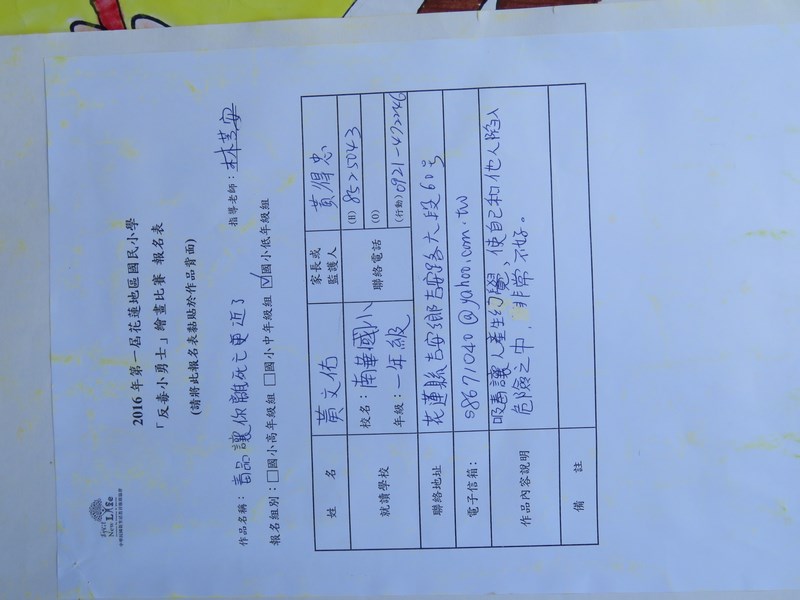 New Life
2016 年第一屆花蓮地區國民小學
「反毒小勇士」繪畫比賽 報名表
(請將此報名表黏貼於作品背面)
作品名稱：毒品讓你離死亡更近了 指導老師：林美安
報名組別：□國小高年級組 □國小中年級組 ☑國小低年級組
姓 名 黃文佑 家長或監護人 黃得忠
就讀學校 校名：南華國小 聯絡電話 (H) 8525043
(O)
年級：一年級 (行動) 0921-472246
聯絡地址 花蓮縣吉安鄉吉安路六段60号
電子信箱: s8671040@yahoo.com.tw
作品內容說明 吸毒讓人產生幻覺，使自己和他人陷入
危險之中，非常不好。
備 註